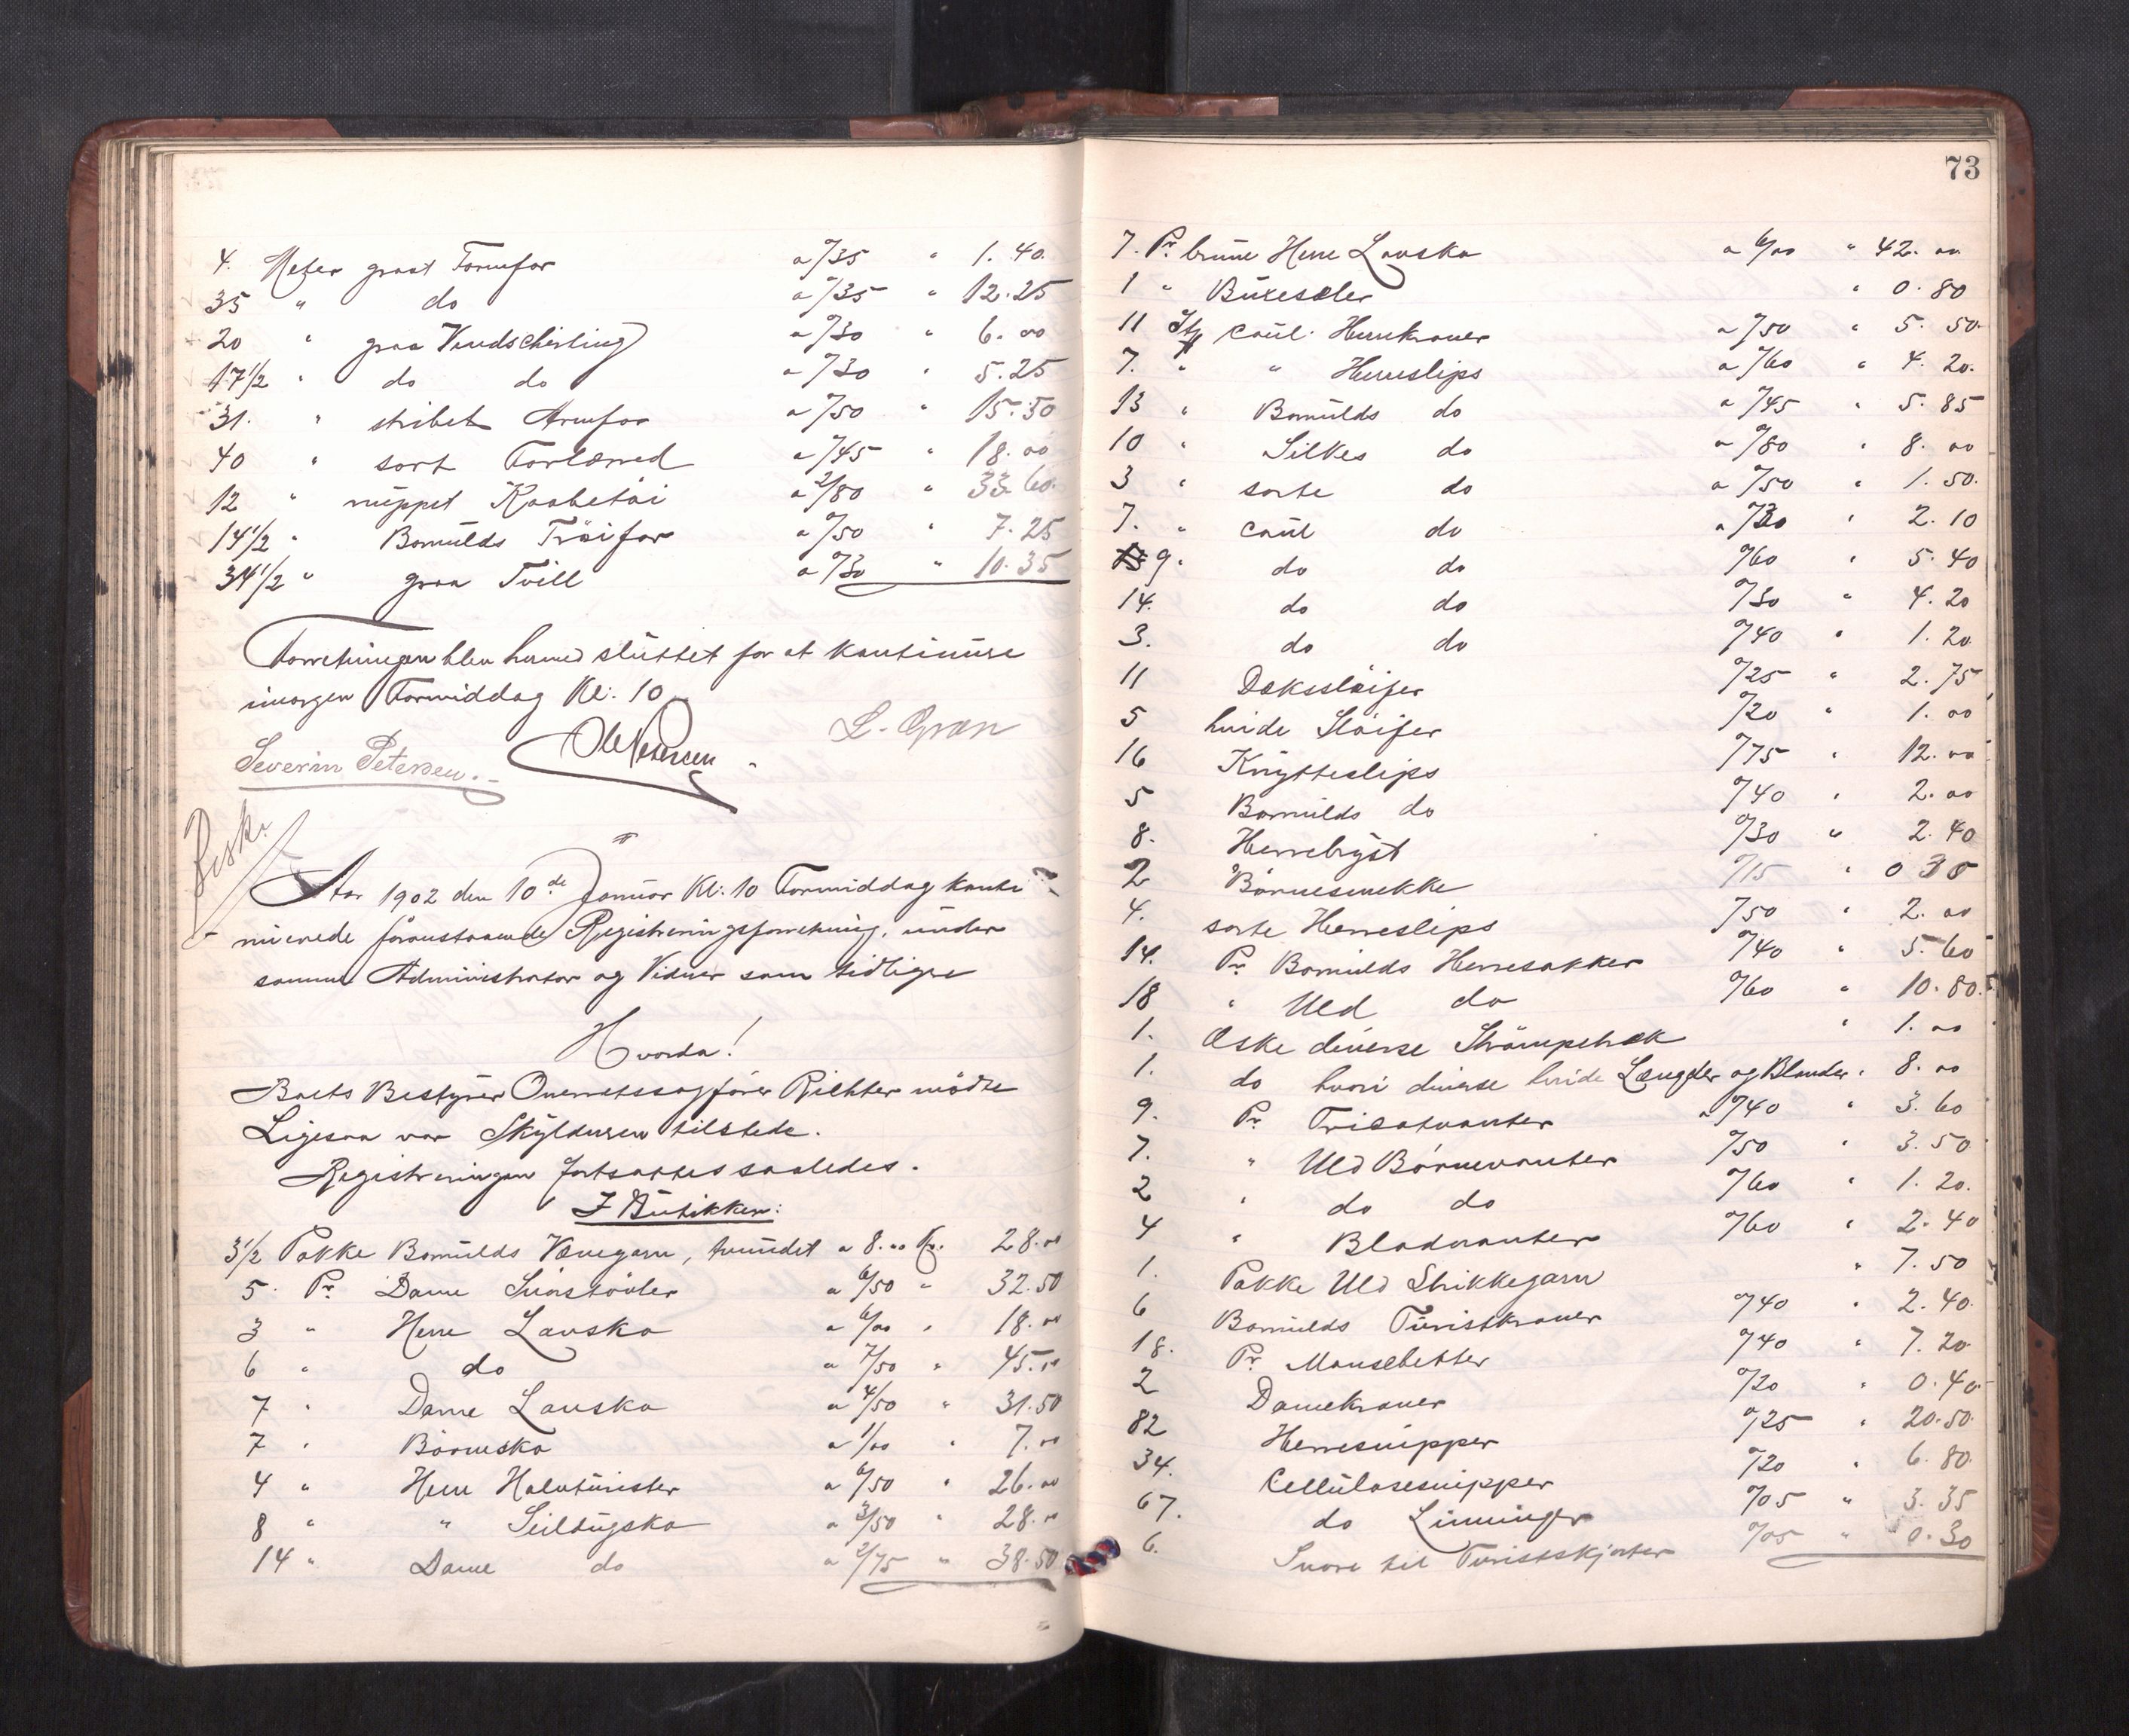 4. Meter graat Formfor a 0/35 " 1.40.
35 " do a 0/35 " 12.25
20 " graa Vendschirting a 0/30 " 6.00
17 1/2 " do do a 0/30 " 5.25
31. " stribet Armfor a 0/50 " 15.50
40 " sort Forlærred a 0/45 " 18.00
12 " nuppet Kaabetöi a 2/80 " 33.60.
14 1/2 " Bomulds Tröifor a 0/50 " 7.25
34 1/2 " graa Tvill a 0/30 " 10.35
Forretningen blev hermed sluttet for at kontinuere
imorgen Formiddag Kl: 10
Severin Petersen. Ole Petersen L. Gran
Aar 1902 den 10de Januar Kl: 10 Formiddag konti
nuerede foranstaaende Registreringsforretning, under
samme Administrator og Vidner som tidligere
Hvorda!
Boets Bestyrer Overretssagförer Richter mödte
Ligesaa var Skyldneren tilstede.
Registreringen fortsattes saaledes.
I Butikken:
3 1/2 Pakke Bomulds Vævegarn, tvundet a 8.00 Kr. 28.00
5. Pr. Dame Snörstövler a 6/50 " 32.50
3 " Herre Lavsko a 6/00 " 18.00
6 " do a 7/50 " 45.00
7 " Dame Lavsko a 4/50 " 31.50
7 " Börnesko a 1/00 " 7.00
4 " Herre Halvturister a 6/50 " 26.00
8 " " Seildugsko a 3/50 " 28.00
14 " Dame do a 2/75 " 38.50
73
7. Pr. brune Herre Lavsko a 6/00 " 42.00
1 " Buxesæler " 0.80
11 Stk coul. Herrekraver a 0/50 " 5.50.
7. " " Herreslips a 0/60 " 4.20.
13 " Bomulds do a 0/45 " 5.85
10 " Silkes do a 0/80 " 8.00
3 " sorte do a 0/50 " 1.50.
7. " coul do a 0/30 " 2.10
9. do do 0/60 " 5.40
14. do do 0/30 " 4.20
3. do do 0/40 " 1.20
11 Dækslöifer 0/25 " 2.75
5 hvide Slöifer 0/20 " 1.00
16 Knytteslips 0/75 " 12.00
5 Bomulds do 0/40 " 2.00
8. Herrebryst 0/30 " 2.40
2 Börnesmekke 0/15 " 0 30
4. sorte Herreslips 0/50 " 2.00
14. Pr. Bomulds Herresokker 0/40 " 5.60
18 " Uld do 0/60 " 10.80.
1. Æske diverse Strömpeholk " 1.00
1. do hvori diverse hvide Længder og Blonder " 8.00
9. Pr. Tricotvanter a 0/40 " 3.60
7. " Uld Börnevanter 0/50 " 3.50
2 " do do 0/60 " 1.20.
4 " Bladvanter 0/60 " 2.40
1. Pakke Uld Strikkegarn " 7.50
6 Bomulds Turistkraver 0/40 " 2.40.
18. Pr. Manschetter 0/40 " 7.20
2 Damekraver 0/20 " 0.40.
82 Herresnipper 0/25 " 20.50.
34. Cellulosesnipper 0/20 " 6.80.
67. do Linninger 0/05 " 3.35
6. Snore til Turistskjorter 0/05 " 0.30